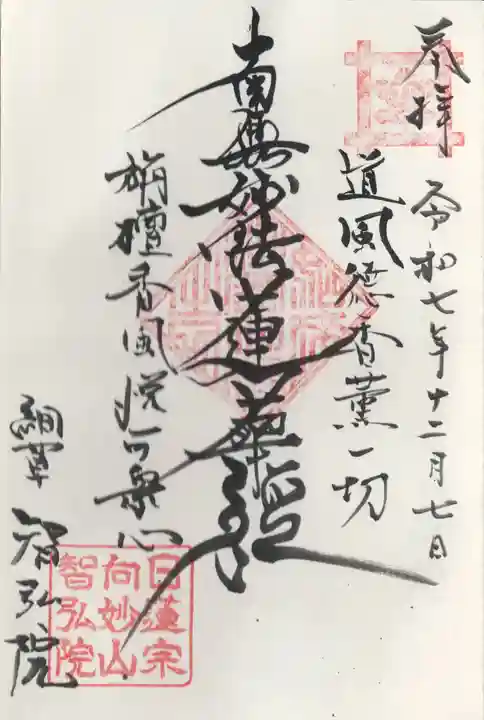 奉拝
令和七年十二月七日
道風徳香薫一切
南無妙法蓮華経
栴檀香風悦可衆心
絅草
智弘院
日蓮宗
向妙山
智弘院